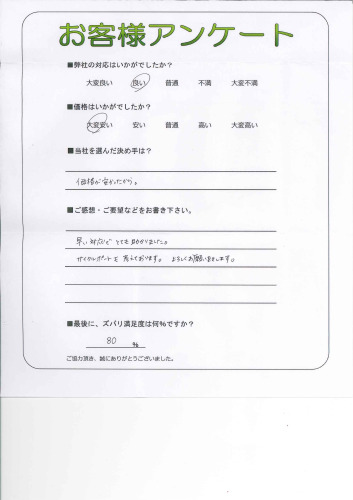 お客様アンケート
■弊社の対応はいかがでしたか？
大変良い 良い 普通 不満 大変不満
■価格はいかがでしたか？
大変安い 安い 普通 高い 大変高い
■当社を選んだ決め手は？
価格が安かったから。
■ご感想・ご要望などをお書き下さい。
早い対応で とても助かりました。
サイクルポートを考えております。よろしくお願いします。
■最後に、ズバリ満足度は何%ですか？
80 %
ご協力頂き、誠にありがとうございました。